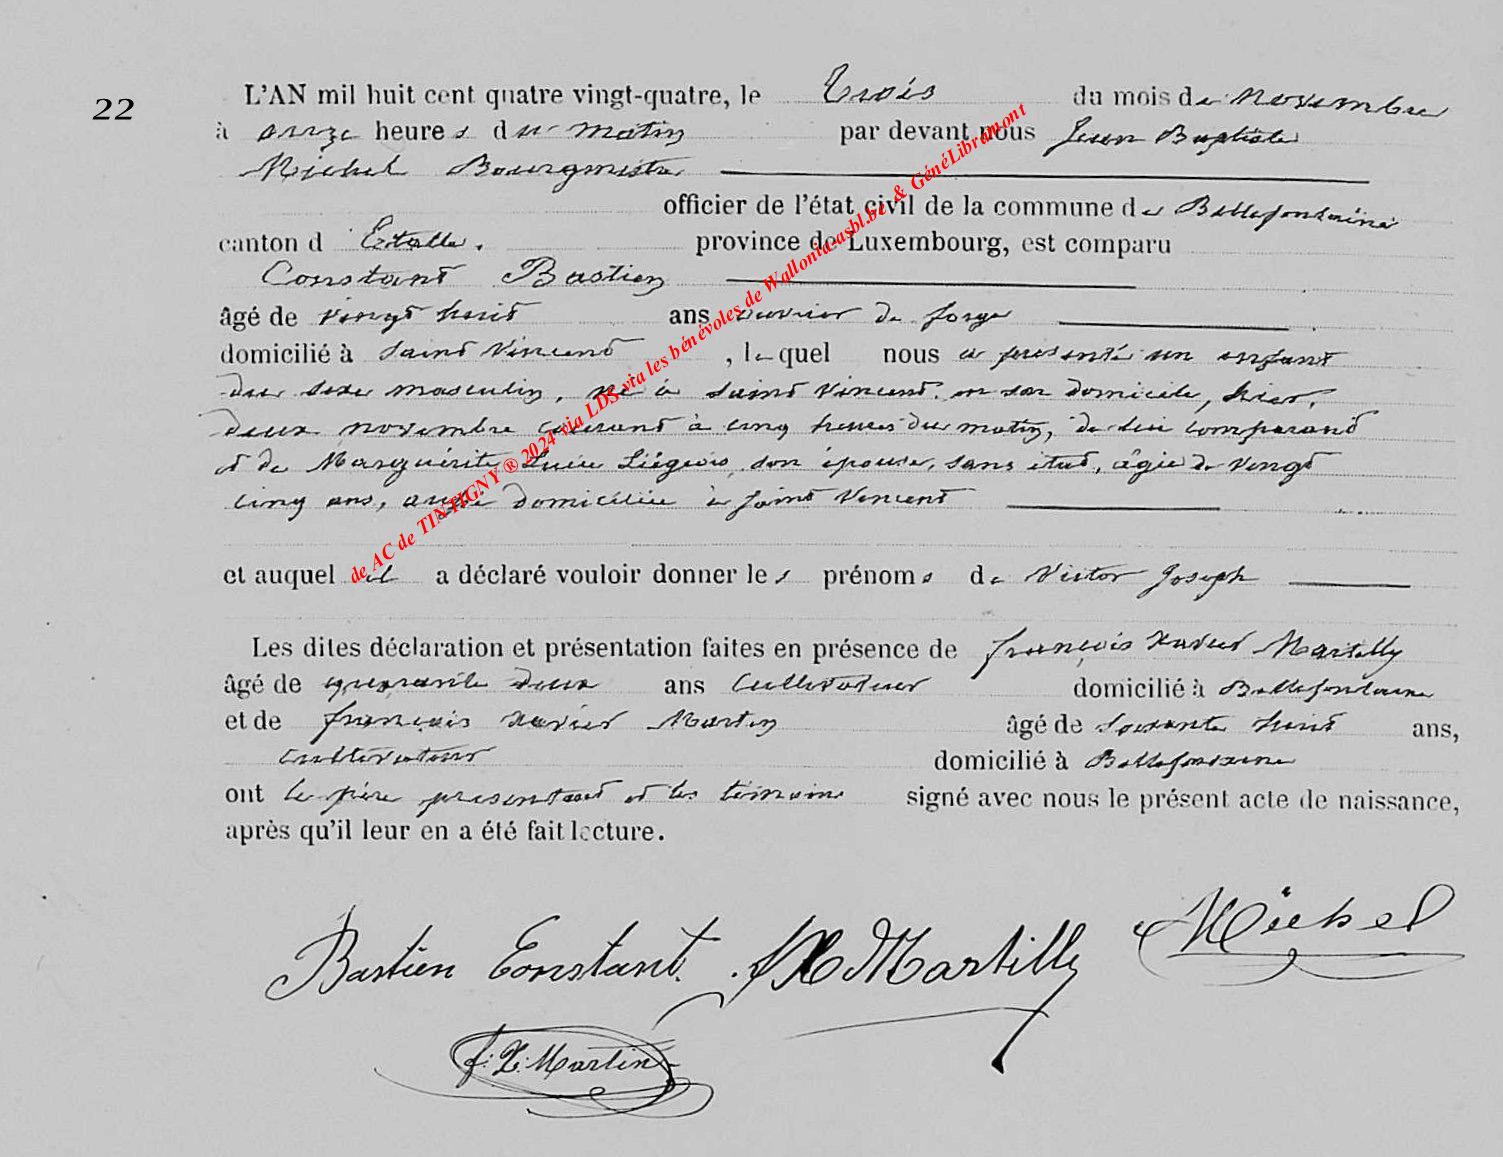 22
L'AN mil huit cent quatre vingt-quatre, le Trois du mois de Novembre
à onze heures du matin par devant nous Jean Baptiste
Michel Bourgmestre
officier de l'état civil de la commune de Bellefontaine
canton d'Etalle. province de Luxembourg, est comparu
Constant Bastien
âgé de vingt huit ans ouvrier de forge
domicilié à Saint Vincent, lequel nous a présenté un enfant
du sexe masculin, né à Saint Vincent en son domicile, hier,
deux novembre courant à cinq heures du matin, de lui comparant
et de Marguérite Lucie Liégeois, son épouse, sans état, âgée de vingt
cinq ans, aussi domiciliée à Saint Vincent
et auquel il a déclaré vouloir donner les prénoms de Victor Joseph
Les dites déclaration et présentation faites en présence de françois Xavier Martilly
âgé de quarante deux ans Cultivateur domicilié à Bellefontaine
et de françois Xavier Martin âgé de soixante huit ans,
cultivateur domicilié à Bellefontaine
ont le père présentant et les témoins signé avec nous le présent acte de naissance,
après qu'il leur en a été fait lecture.
Bastien Constant. f X Martilly Michel
f. X. Martin
de AC de TINTIGNY ® 2024 via LDS via les bénévoles de Wallonia-asbl.be & GénéLibramont